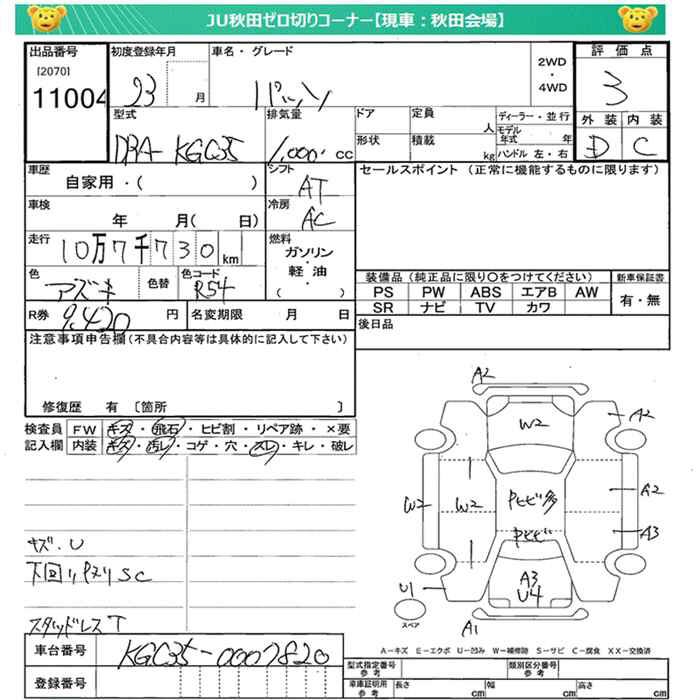 JU秋田ゼロ切りコーナー【現車：秋田会場】
出品番号
[2070]
11004
初度登録年月
23 月
車名・グレード
パッソ
2WD
・
4WD
評価点
3
外装 内装
D C
型式
DBA-KGC35
排気量
1,000 cc
ドア
形状
定員 人
積載 kg
ディーラー・並行
モデル年式 年
ハンドル 左・右
車歴
自家用・( )
シフト
AT
セールスポイント (正常に機能するものに限ります)
車検
年 月( 日)
冷房
AC
走行
10万7千730km
燃料
ガソリン
・
軽油
・
( )
色
アズキ
色替
色コード
R54
装備品 (純正品に限り〇をつけてください)
新車保証書
PS PW ABS エアB AW
SR ナビ TV カワ
有・無
R券
9,420円
名変期限 月 日
後日品
注意事項申告欄(不具合内容等は具体的に記入して下さい)
修復歴 有 〔箇所 〕
検査員 FW キズ・飛石・ヒビ割・リペア跡・×要
記入欄 内装 キズ・汚レ・コゲ・穴・スレ・キレ・破レ
キズ.U
下回りPヌリSC
スタッドレスT
A2
W2
A2
W2
W2
Pヒビ多
A2
Pヒビ
A3
U1
A3
U4
A1
スペア
A-キズ E-エクボ U-凹み W-補修跡 S-サビ C-腐食 XX-交換済
車台番号
KGC35-0007820
登録番号
型式指定番号 参考
類別区分番号 参考
車庫証明用 参考
長さ cm
幅 cm
高さ cm